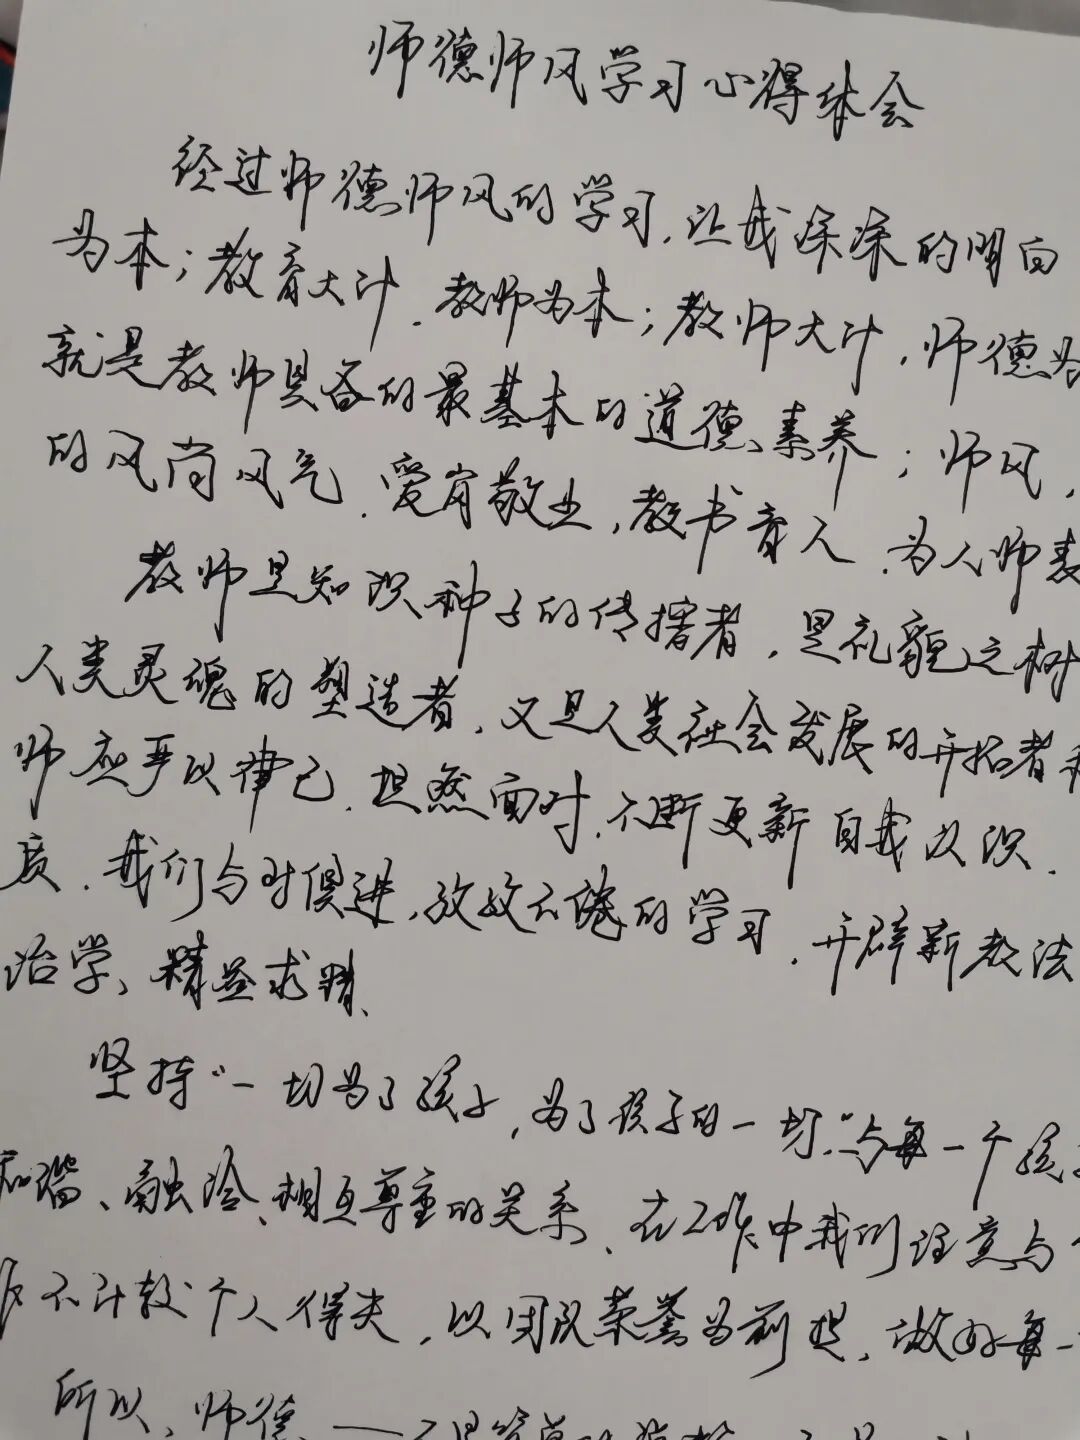 师德师风学习心得体会
经过师德师风的学习,让我深深的明白
为本;教育大计,教师为本;教师大计,师德为
就是教师具备的最基本的道德素养;师风,
的风尚风气.爱岗敬业,教书育人.为人师表
教师是知识种子的传播者,是礼貌之树
人类灵魂的塑造者,又是人类社会发展的开拓者
师应严以律己.坦然面对.不断更新自我认识.
质.我们与时俱进,孜孜不倦的学习.开辟新教法
治学、精益求精、
坚持“一切为了孩子,为了孩子的一切.”与每一个孩
和谐、融洽、相互尊重的关系、在工作中我们注意与
不计较个人得失,以团队荣誉为前提、做好每一
所以、师德、——不是简单的说教